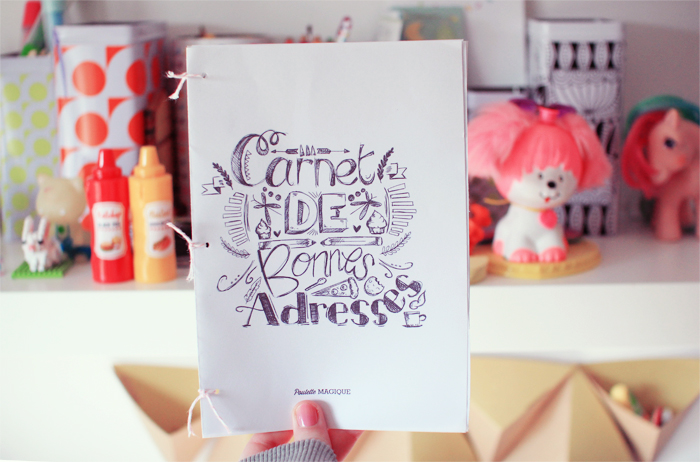 Carnet
DE
Bonnes
Adresses
Paulette MAGIQUE